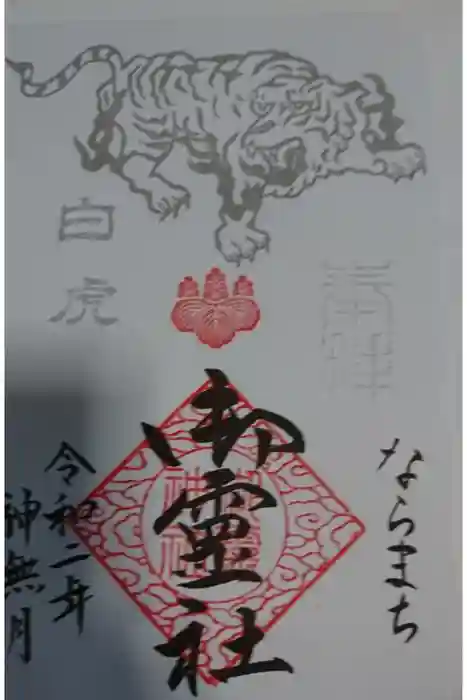 奉拝
ならまち
御靈社
白虎
令和二年
神無月